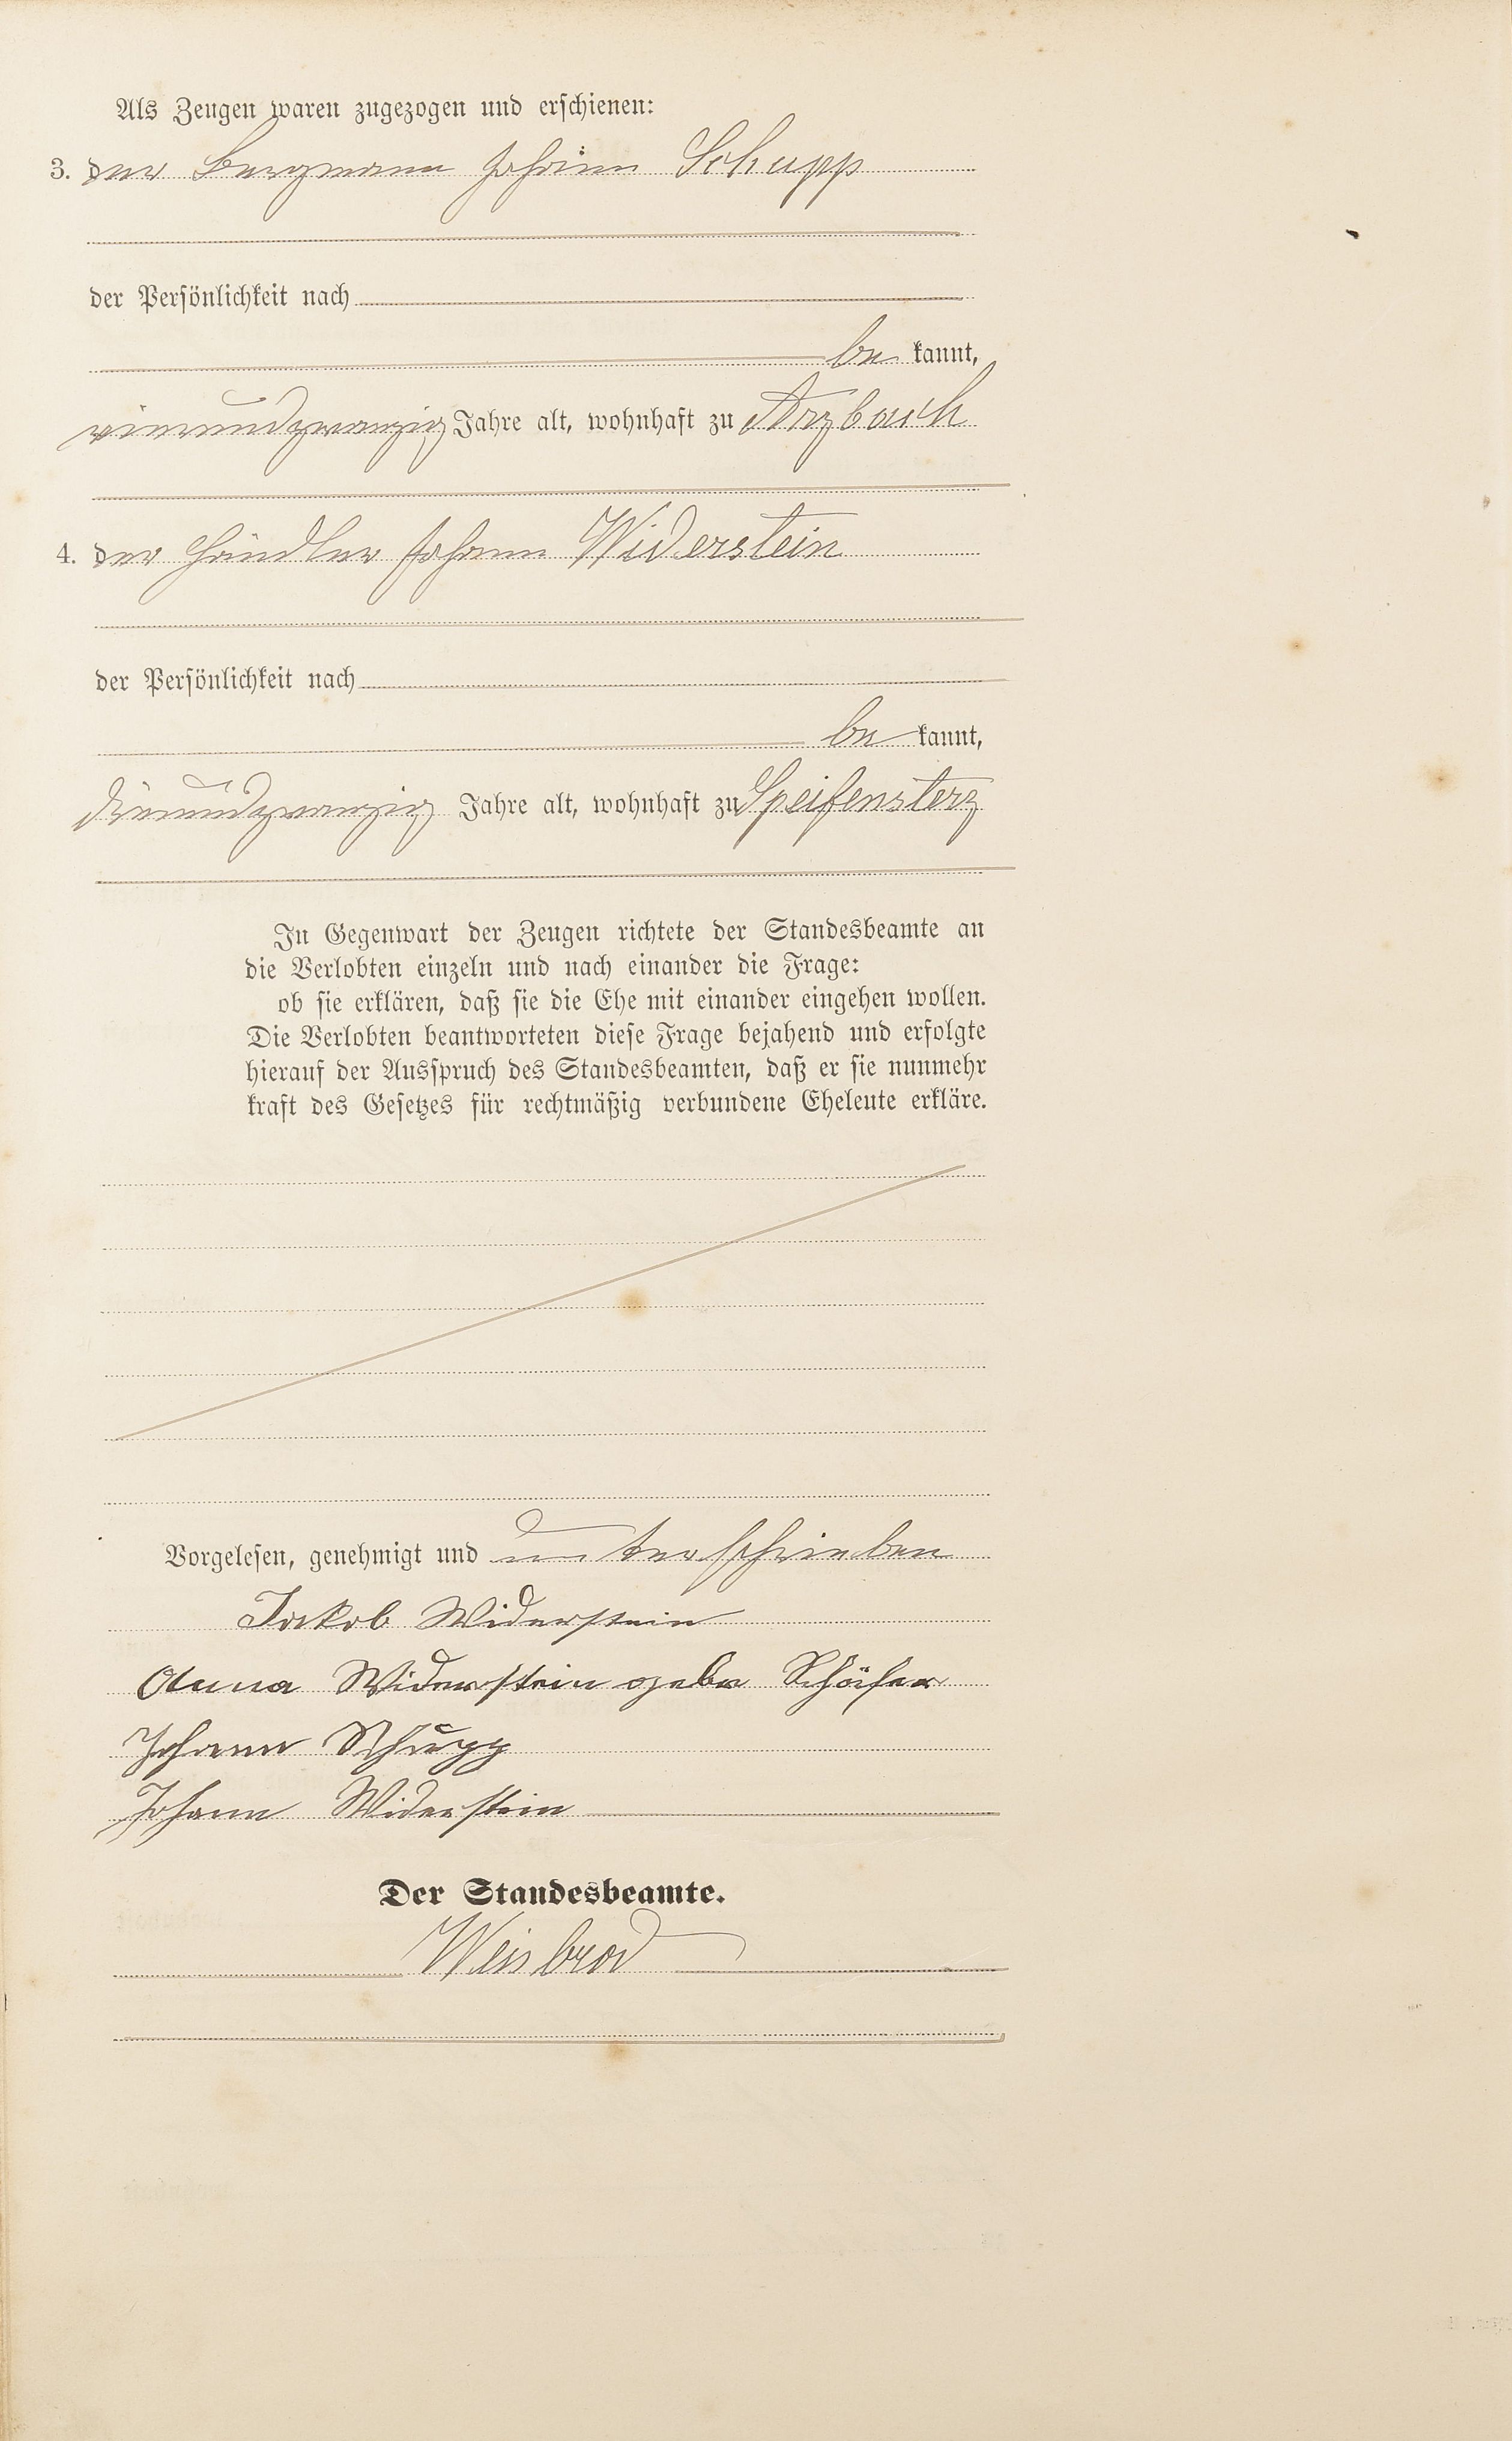 Als Zeugen waren zugezogen und erschienen:
3. der Bergmann Johann Schupp
der Persönlichkeit nach
be kannt,
vierundzwanzig Jahre alt, wohnhaft zu Arzbach
4. der Händler Johann Widerstein
der Persönlichkeit nach
be kannt,
dreiundzwanzig Jahre alt, wohnhaft zu Speifensterz
In Gegenwart der Zeugen richtete der Standesbeamte an
die Verlobten einzeln und nach einander die Frage:
ob sie erklären, daß sie die Ehe mit einander eingehen wollen.
Die Verlobten beantworteten diese Frage bejahend und erfolgte
hierauf der Ausspruch des Standesbeamten, daß er sie nunmehr
kraft des Gesetzes für rechtmäßig verbundene Eheleute erkläre.
Vorgelesen, genehmigt und unterschrieben
Jakob Widerstein
Anna Widerstein gebr Schäfer
Johann Schupp
Johann Widerstein
Der Standesbeamte.
Weisbrod